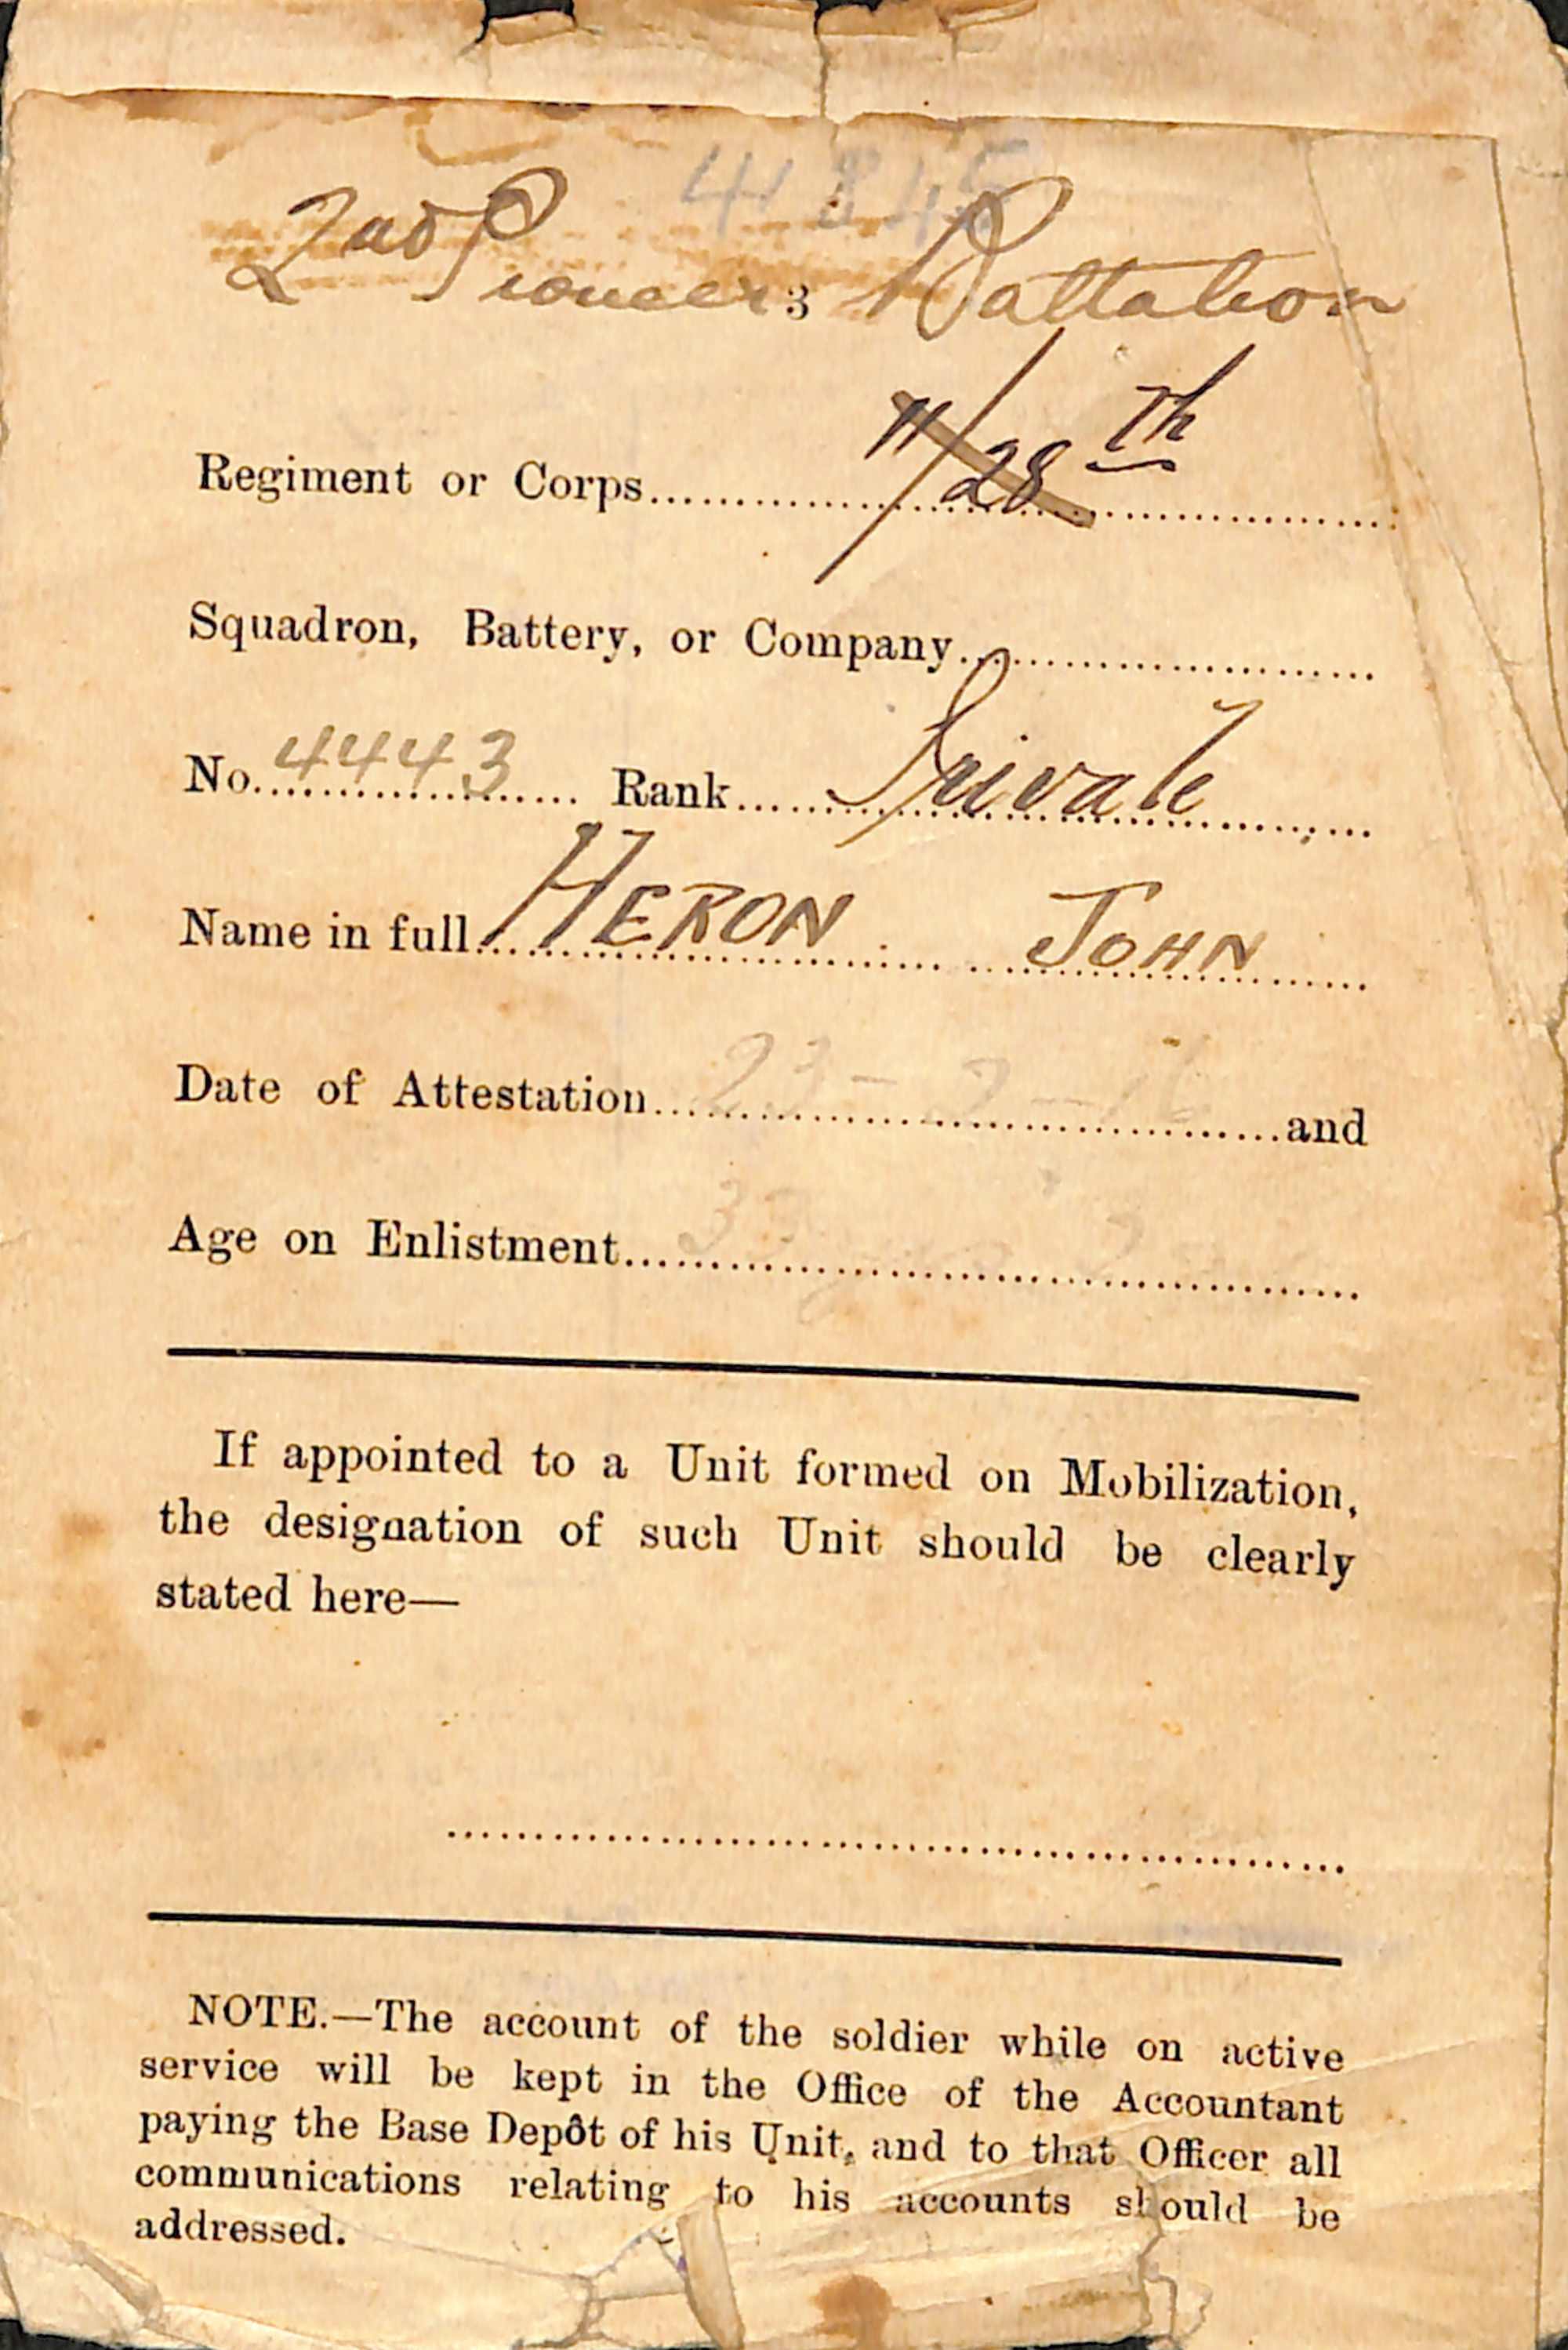 2nd Pioneers Battalion
3
Regiment or Corps 11/28th
Squadron, Battery, or Company
No. 4443 Rank Private
Name in full HERON JOHN
Date of Attestation 23 - - 16 and
Age on Enlistment 33
If appointed to a Unit formed on Mobilization,
the designation of such Unit should be clearly
stated here—
NOTE.—The account of the soldier while on active
service will be kept in the Office of the Accountant
paying the Base Depôt of his Unit, and to that Officer all
communications relating to his accounts should be
addressed.